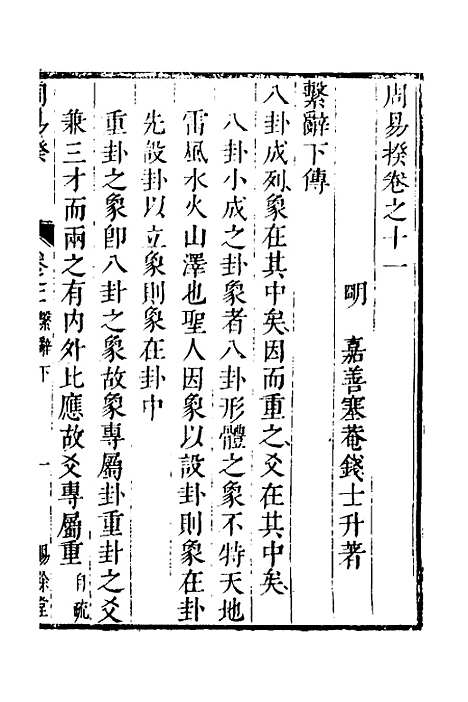 周易揆卷之十一
明 嘉善塞菴錢士升著
繫辭下傳
八卦成列象在其中矣因而重之爻在其中矣
八卦小成之卦象者八卦形體之象不特天地
雷風水火山澤也聖人因象以設卦則象在卦
先設卦以立象則象在卦中
重卦之象卽八卦之象故象專屬卦重卦之爻
兼三才而兩之有內外比應故爻專屬重
周易揆 繫辭下 一 賜餘堂